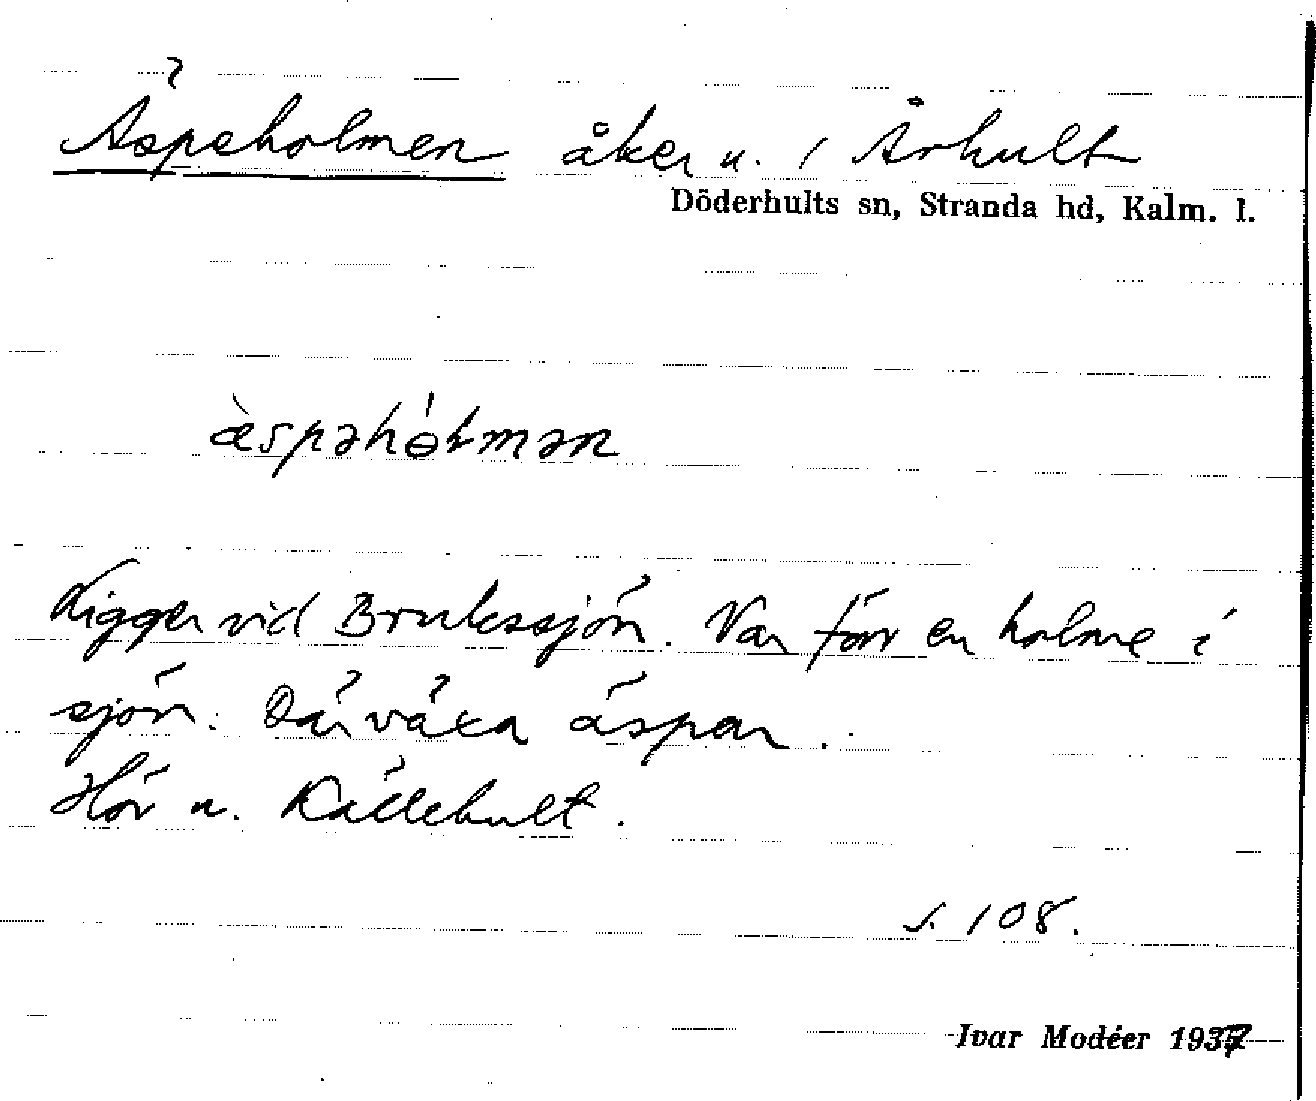 Äspeholmen åker u. / Århult
Döderhults sn, Stranda hd, Kalm. l.
æ̀spəhɵ́lmən
Ligger vid Brukssjön. Var förr en holme i
sjön. Där växa äspar.
Hör u. Källehult.
s. 108.
Ivar Modéer 1937